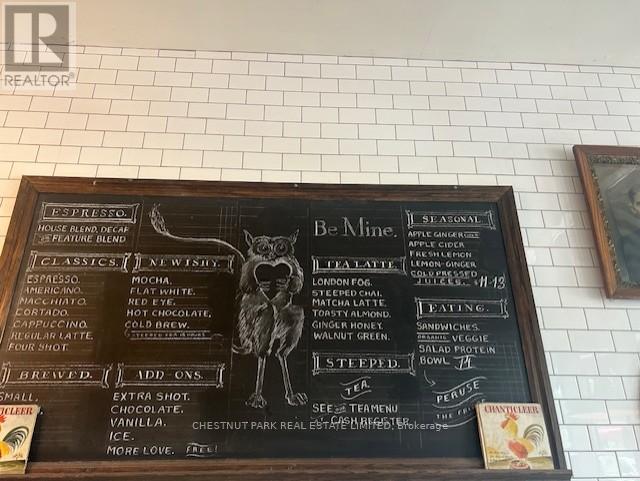 REALTOR®
ESPRESSO.
HOUSE BLEND, DECAF
FEATURE BLEND
CLASSICS.
ESPRESSO.
AMERICANO.
MACCHIATO.
CORTADO.
CAPPUCCINO.
REGULAR LATTE.
FOUR SHOT.
NEWISHY.
MOCHA.
FLAT WHITE.
RED EYE.
HOT CHOCOLATE,
COLD BREW.
BREWED.
SMALL.
ADD-ONS.
EXTRA SHOT.
CHOCOLATE.
VANILLA.
ICE.
MORE LOVE. FREE!
Be Mine.
TEA LATTE
LONDON FOG.
STEEPED CHAI.
MATCHA LATTE.
TOASTY ALMOND.
GINGER HONEY.
WALNUT GREEN.
STEEPED.
TEA.
SEE TEA MENU
CASH REGISTER
SEASONAL
APPLE GINGER
APPLE CIDER
FRESH LEMON
LEMON-GINGER
COLD PRESSED
JUICES. 11-13
EATING.
SANDWICHES.
ORGANIC VEGGIE
SALAD PROTEIN
BOWL
PERUSE
THE
CHANTICLEER
CHANTICLEER
CHESTNUT PARK REAL ESTATE LIMITED, Brokerage